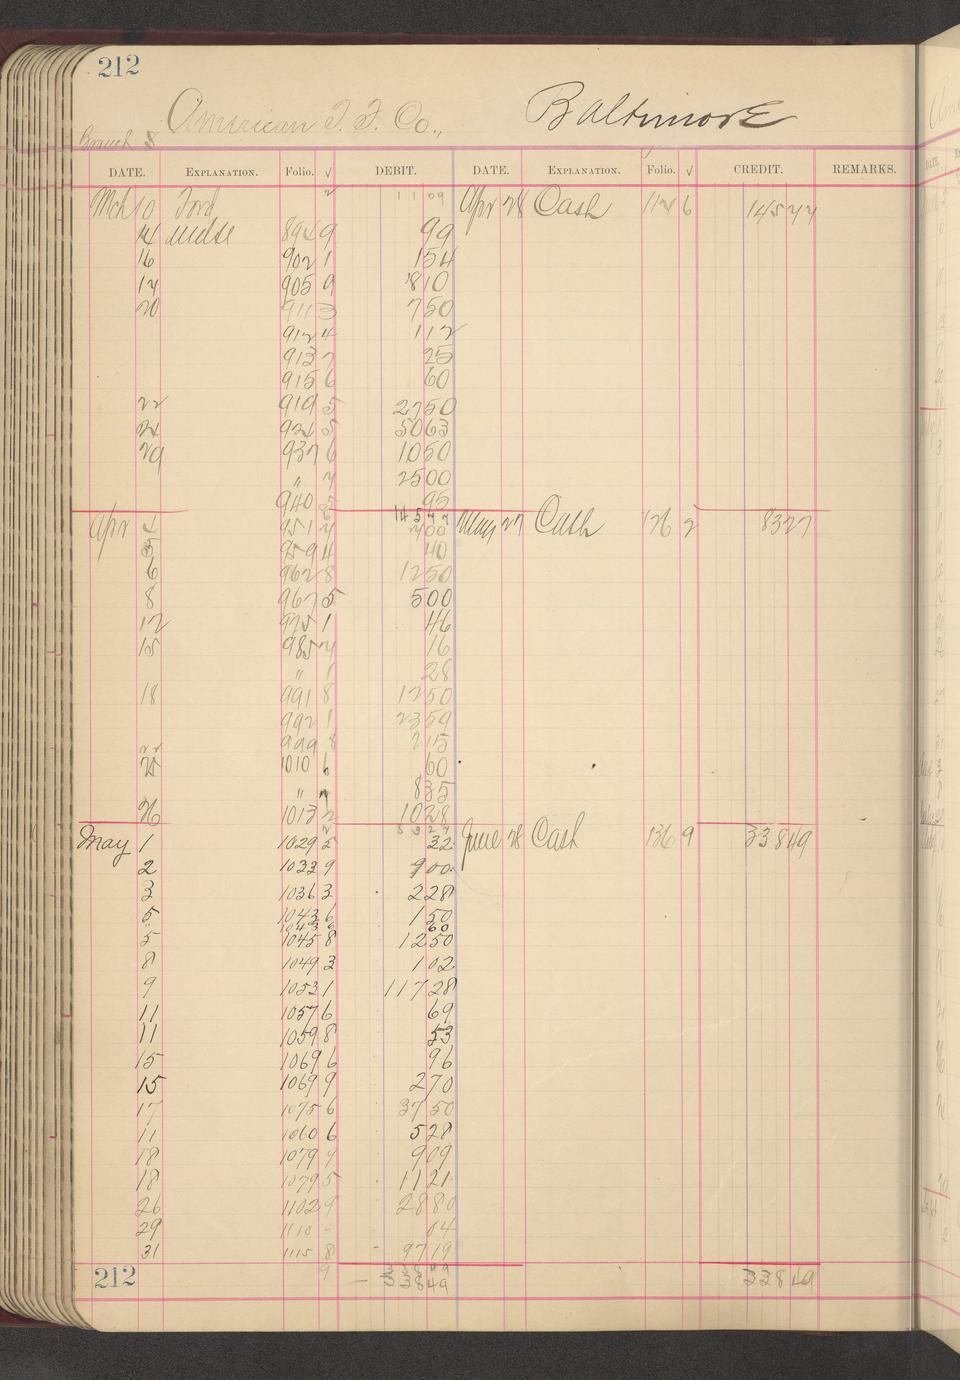 212
American T. F. Co., Baltimore
Branch 8
DATE. EXPLANATION. Folio. √ DEBIT. DATE. EXPLANATION. Folio. √ CREDIT. REMARKS.
Mch 10 Ford 2 11 09 Apr 28 Cash 112 6 145 77
14 Mdse 894 9 99
16 902 1 1 54
17 905 9 8 10
20 911 3 7 50
912 4 1 12
913 7 25
915 6 60
22 919 5 27 50
24 926 5 50 63
29 937 6 10 50
" 7 25 00
940 5 95
145 77
Apr 951 2 00 May 27 Cash 126 2 83 27
3 959 4 40
6 962 8 12 50
8 967 5 5 00
12 975 1 46
15 985 7 16
" 1 28
18 991 8 12 50
992 1 23 59
22 999 8 2 15
25 1010 6 60
" 7 8 35
26 1013 2 10 28
83 27
May 1 1029 5 32 June 28 Cash 136 9 338 49
2 1033 9 9 00
3 1036 3 2 28
5 1043 6 1 50
1043 6 60
5 1045 8 12 50
8 1049 3 1 02
9 1053 1 117 28
11 1057 6 69
11 1059 8 53
15 1069 6 96
15 1069 9 2 70
17 1075 6 37 50
11 1060 6 5 28
18 1079 9 9 09
18 1079 5 11 21
26 1102 9 28 80
29 1110 04
31 1115 8 97 19
338 49
212 9 338 49 338 49